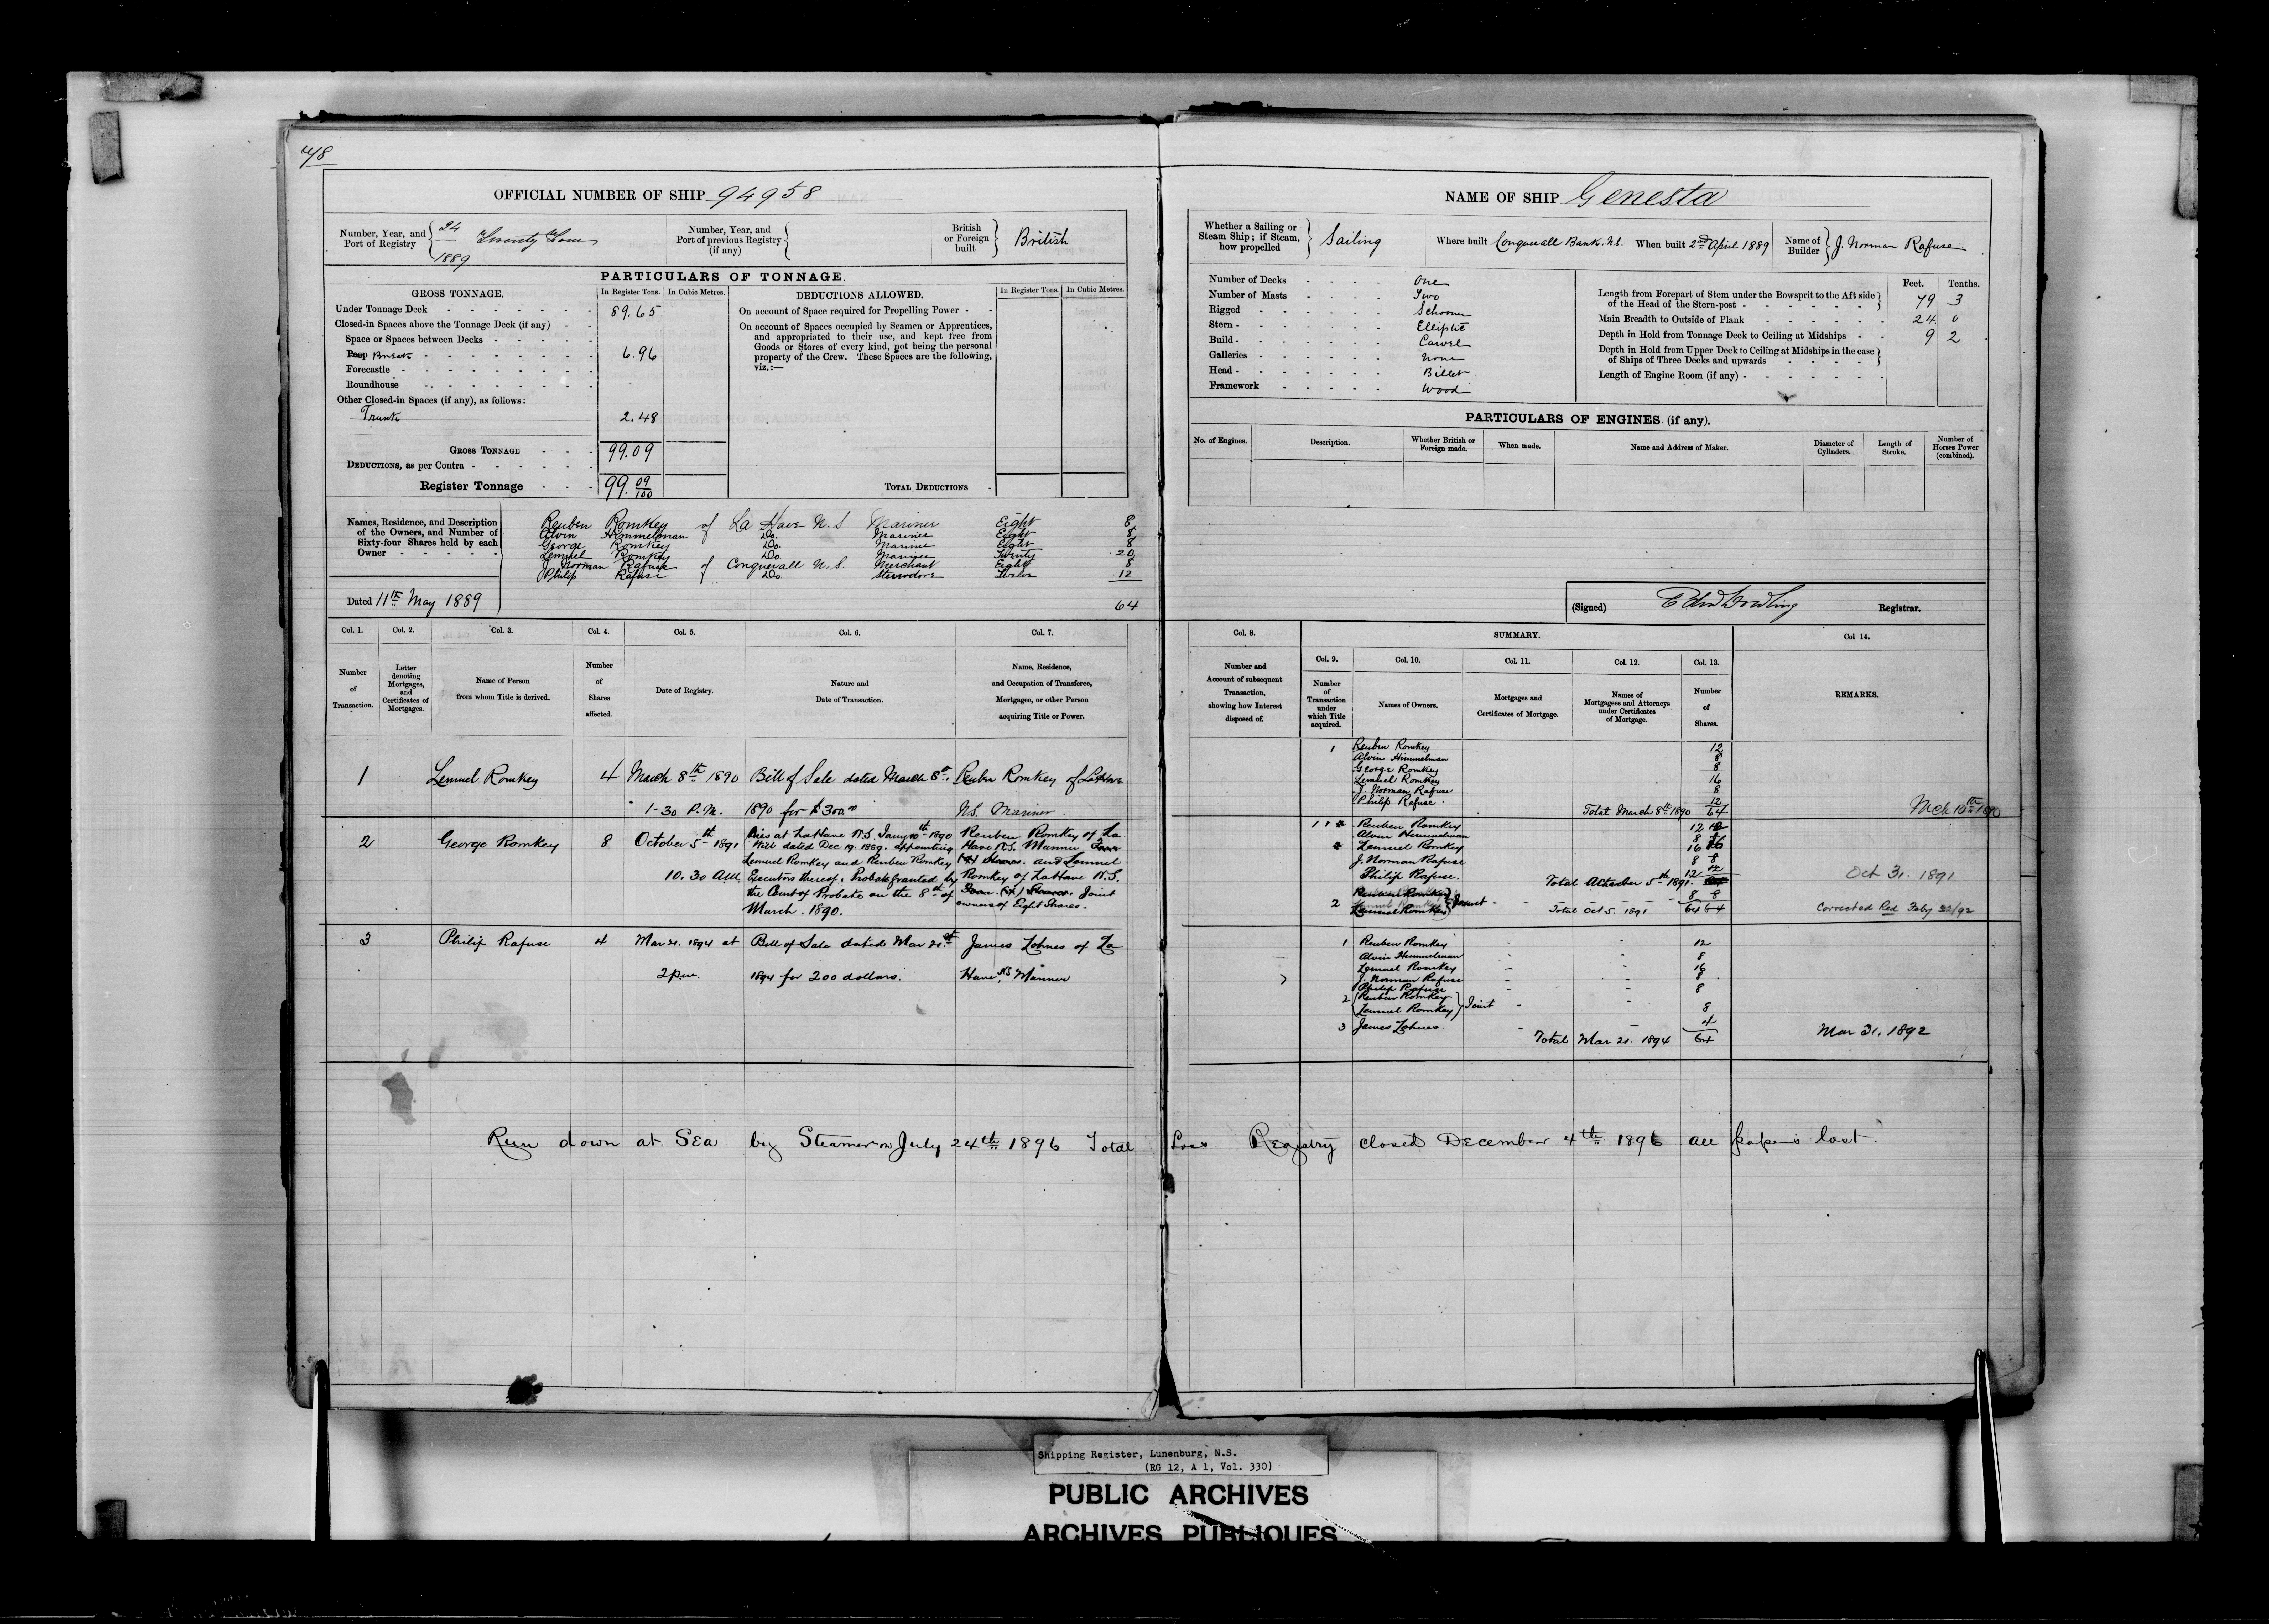 48
OFFICIAL NUMBER OF SHIP 94958
Number, Year, and Port of Registry { 24 Twenty Four 1889
Number, Year, and Port of previous Registry (if any) {
British or Foreign built } British
PARTICULARS OF TONNAGE.
GROSS TONNAGE. In Register Tons. In Cubic Metres.
Under Tonnage Deck 89.65
Closed-in Spaces above the Tonnage Deck (if any)
Space or Spaces between Decks
Poop Break 6.96
Forecastle
Roundhouse
Other Closed-in Spaces (if any), as follows:
Trunk 2.48
GROSS TONNAGE 99.09
DEDUCTIONS, as per Contra
Register Tonnage 99. 09/100
DEDUCTIONS ALLOWED. In Register Tons. In Cubic Metres.
On account of Space required for Propelling Power
On account of Spaces occupied by Seamen or Apprentices,
and appropriated to their use, and kept free from
Goods or Stores of every kind, not being the personal
property of the Crew. These Spaces are the following,
viz.:—
TOTAL DEDUCTIONS
Names, Residence, and Description
of the Owners, and Number of
Sixty-four Shares held by each
Owner
Reuben Romkey of La Have N.S Mariner Eight 8
Alvin Himmelman Do. Mariner Eight 8
George Romkey Do. Mariner Eight 8
Lemuel Romkey Do. Mariner Twenty 20
J. Norman Rafuse of Conquerall N.S. Merchant Eight 8
Philip Rafuse Do. Stevedore Twelve 12
64
Dated 11th May 1889
NAME OF SHIP Genesta
Whether a Sailing or Steam Ship; if Steam, how propelled } Sailing
Where built Conquerall Bank. N.S.
When built 2nd April 1889
Name of Builder } J. Norman Rafuse
Number of Decks One
Number of Masts Two
Rigged Schooner
Stern Elliptic
Build Carvel
Galleries None
Head Billet
Framework Wood
Feet. Tenths.
Length from Forepart of Stem under the Bowsprit to the Aft side of the Head of the Stern-post 79 3
Main Breadth to Outside of Plank 24 0
Depth in Hold from Tonnage Deck to Ceiling at Midships 9 2
Depth in Hold from Upper Deck to Ceiling at Midships in the case of Ships of Three Decks and upwards
Length of Engine Room (if any)
PARTICULARS OF ENGINES (if any).
No. of Engines. Description. Whether British or Foreign made. When made. Name and Address of Maker. Diameter of Cylinders. Length of Stroke. Number of Horses Power (combined).
(Signed) Registrar.
Col. 1. Col. 2. Col. 3. Col. 4. Col. 5. Col. 6. Col. 7.
Number of Transaction.
Letter denoting Mortgages, and Certificates of Mortgages.
Name of Person from whom Title is derived.
Number of Shares affected.
Date of Registry.
Nature and Date of Transaction.
Name, Residence, and Occupation of Transferee, Mortgagee, or other Person acquiring Title or Power.
1 Lemuel Romkey 4 March 8th 1890 Bill of Sale dated March 8th Reuben Romkey of La Have
1-30 P.M. 1890 for $300.00 N.S. Mariner
2 George Romkey 8 October 5th 1891 Dies at La Have N.S. Jany 10th 1890 Reuben Romkey of La
Will dated Dec 19. 1889. appointing Have N.S. Mariner Four
Lemuel Romkey and Reuben Romkey (4) Shares. and Lemuel
10.30 AM. Executors thereof. Probate granted by Romkey of La Have N.S.
the Court of Probate on the 8th of Four (4) Shares. Joint
March. 1890. owners of Eight Shares.
3 Philip Rafuse 4 Mar 21. 1894 at Bill of Sale dated Mar 21st James Zohnes of La
2 p.m. 1894 for 200 dollars. Have NS Mariner
Col. 8. SUMMARY. Col. 14.
Col. 9. Col. 10. Col. 11. Col. 12. Col. 13.
Number and Account of subsequent Transaction, showing how Interest disposed of.
Number of Transaction under which Title acquired.
Names of Owners.
Mortgages and Certificates of Mortgage.
Names of Mortgagees and Attorneys under Certificates of Mortgage.
Number of Shares.
REMARKS.
1 Reuben Romkey 12
Alvin Himmelman 8
George Romkey 8
Lemuel Romkey 16
J. Norman Rafuse 8
Philip Rafuse 12
Total March 8th 1890 64 Mch 10th 1890
Reuben Romkey 12
Alvin Himmelman 8
Lemuel Romkey 16
J. Norman Rafuse 8 8
Philip Rafuse. 12 12
Total October 5th 1891. Oct 31. 1891
2 Reuben Romkey } Joint 8 8
Lemuel Romkey
Total Oct 5. 1891 64 64 Corrected Feby 22/92
1 Reuben Romkey 12
Alvin Himmelman 8
Lemuel Romkey 16
J. Norman Rafuse 8
Philip Rafuse 8
2 { Reuben Romkey } Joint
Lemuel Romkey 8
3 James Zohnes 4
Total Mar 21. 1894 64 Mar 31, 1892
Run down at Sea by Steamer on July 24th 1896 Total Loss. Registry closed December 4th 1896 all papers lost
Shipping Register, Lunenburg, N.S.
(RG 12, A 1, Vol. 330)
PUBLIC ARCHIVES
ARCHIVES PUBLIQUES